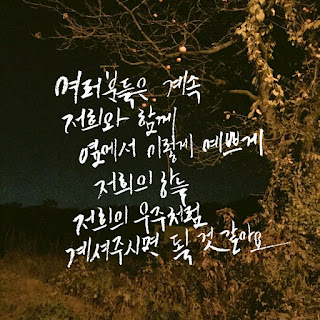 여러분들은 계속
저희와 함께
옆에서 이렇게 예쁘게
저희의 하늘
저희의 우주처럼
계셔주시면 될 것 같아요